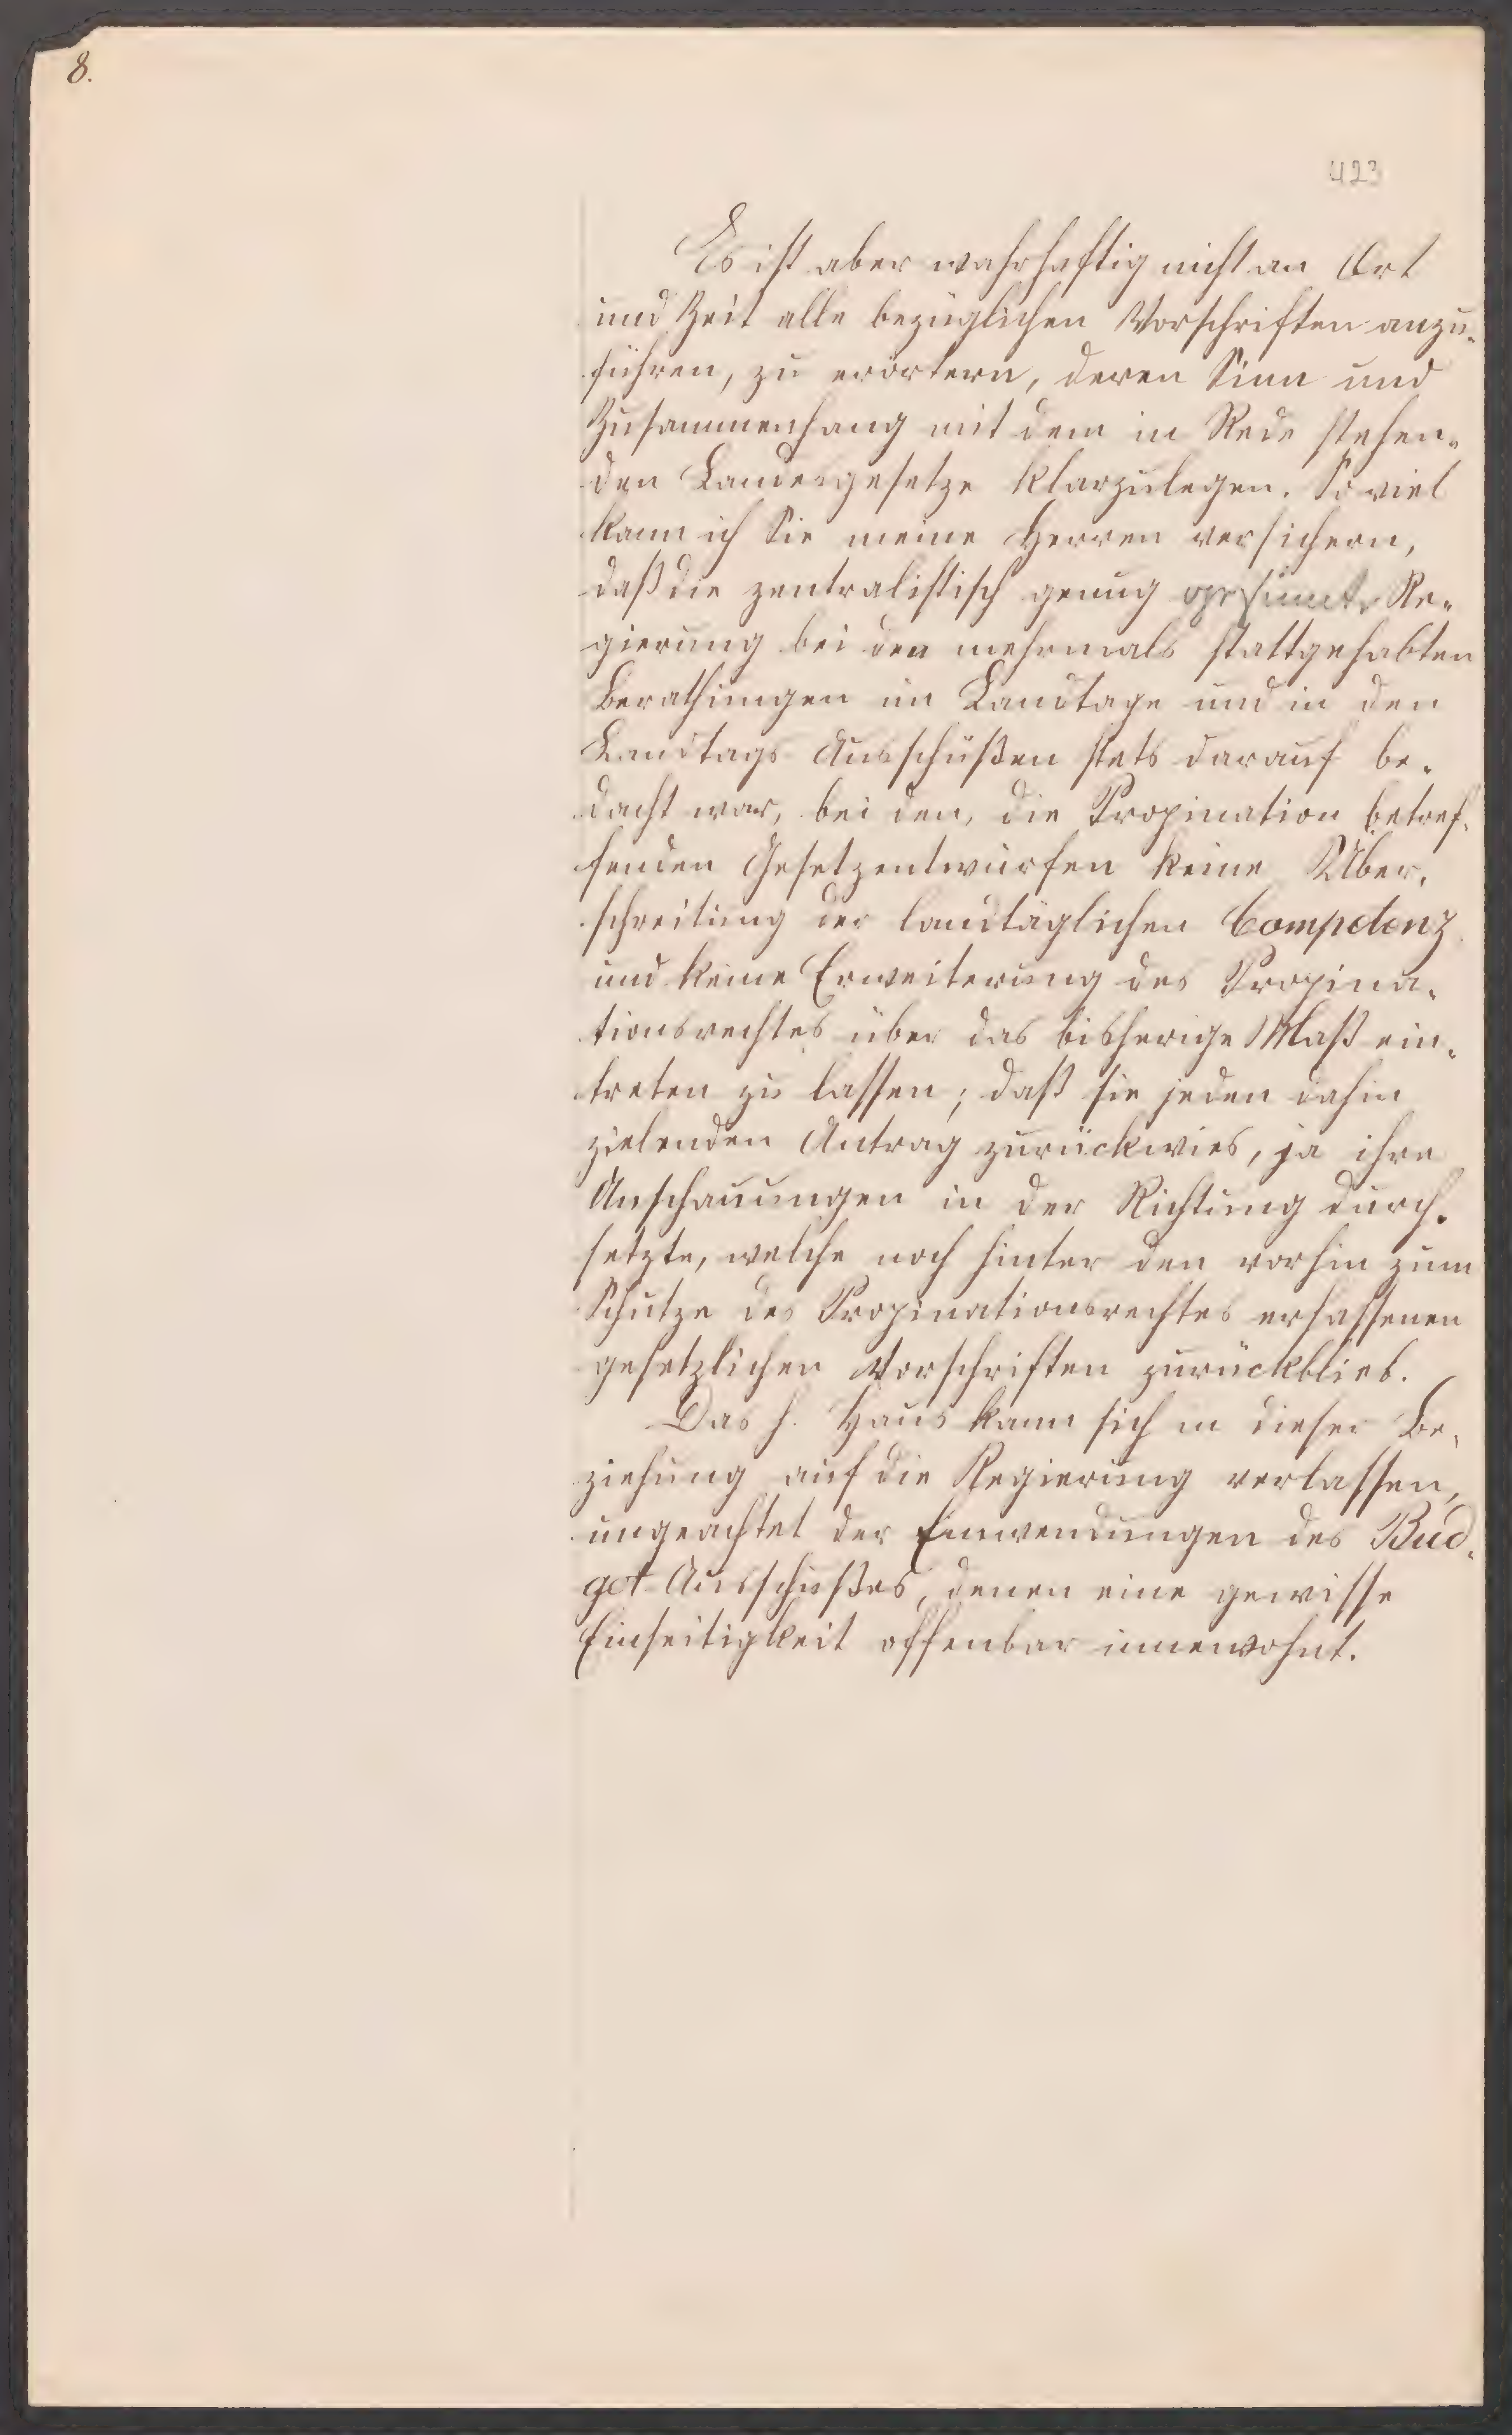 8.
423
Es ist aber wahrhaftig nicht an Ort
und Zeit alle bezüglichen Vorschriften anzu-
führen, zu erörtern, deren Sinn und
Zusammenhang mit dem in Rede stehen-
den Landesgesetze klarzulegen. So viel
kann ich Sie meine Herren versichern,
daß die zentralistisch genug gesinnte Re-
gierung bei den mehrmals stattgehabten
Berathungen im Landtage und in den
Landtags Ausschüßen stets darauf be-
dacht war, bei den, die Propination betref-
fenden Gesetzentwürfen keine Über-
schreitung der landtäglichen Competenz
und keine Erweiterung des Propina-
tionsrechtes über das bisherige Maß ein-
treten zu lassen; daß sie jeden dahin
zielenden Antrag zurückwies, ja ihre
Anschauungen in der Richtung durch-
setzte, welche noch hinter den vorhin zum
Schutze des Propinationsrechtes erlassenen
gesetzlichen Vorschriften zurückblieb.
Das h. Haus kann sich in dieser Be-
ziehung auf die Regierung verlassen,
ungeachtet der Einwendungen des Bud-
get Ausschußes, denen eine gewisse
Einseitigkeit offenbar innewohnt.